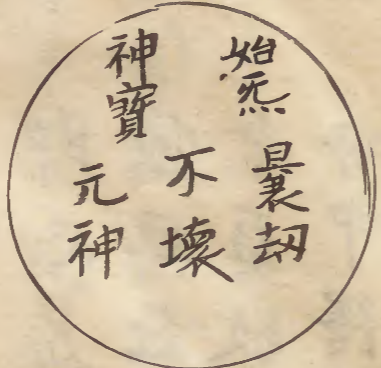 始炁
神寶
曩刼
不壞
元神